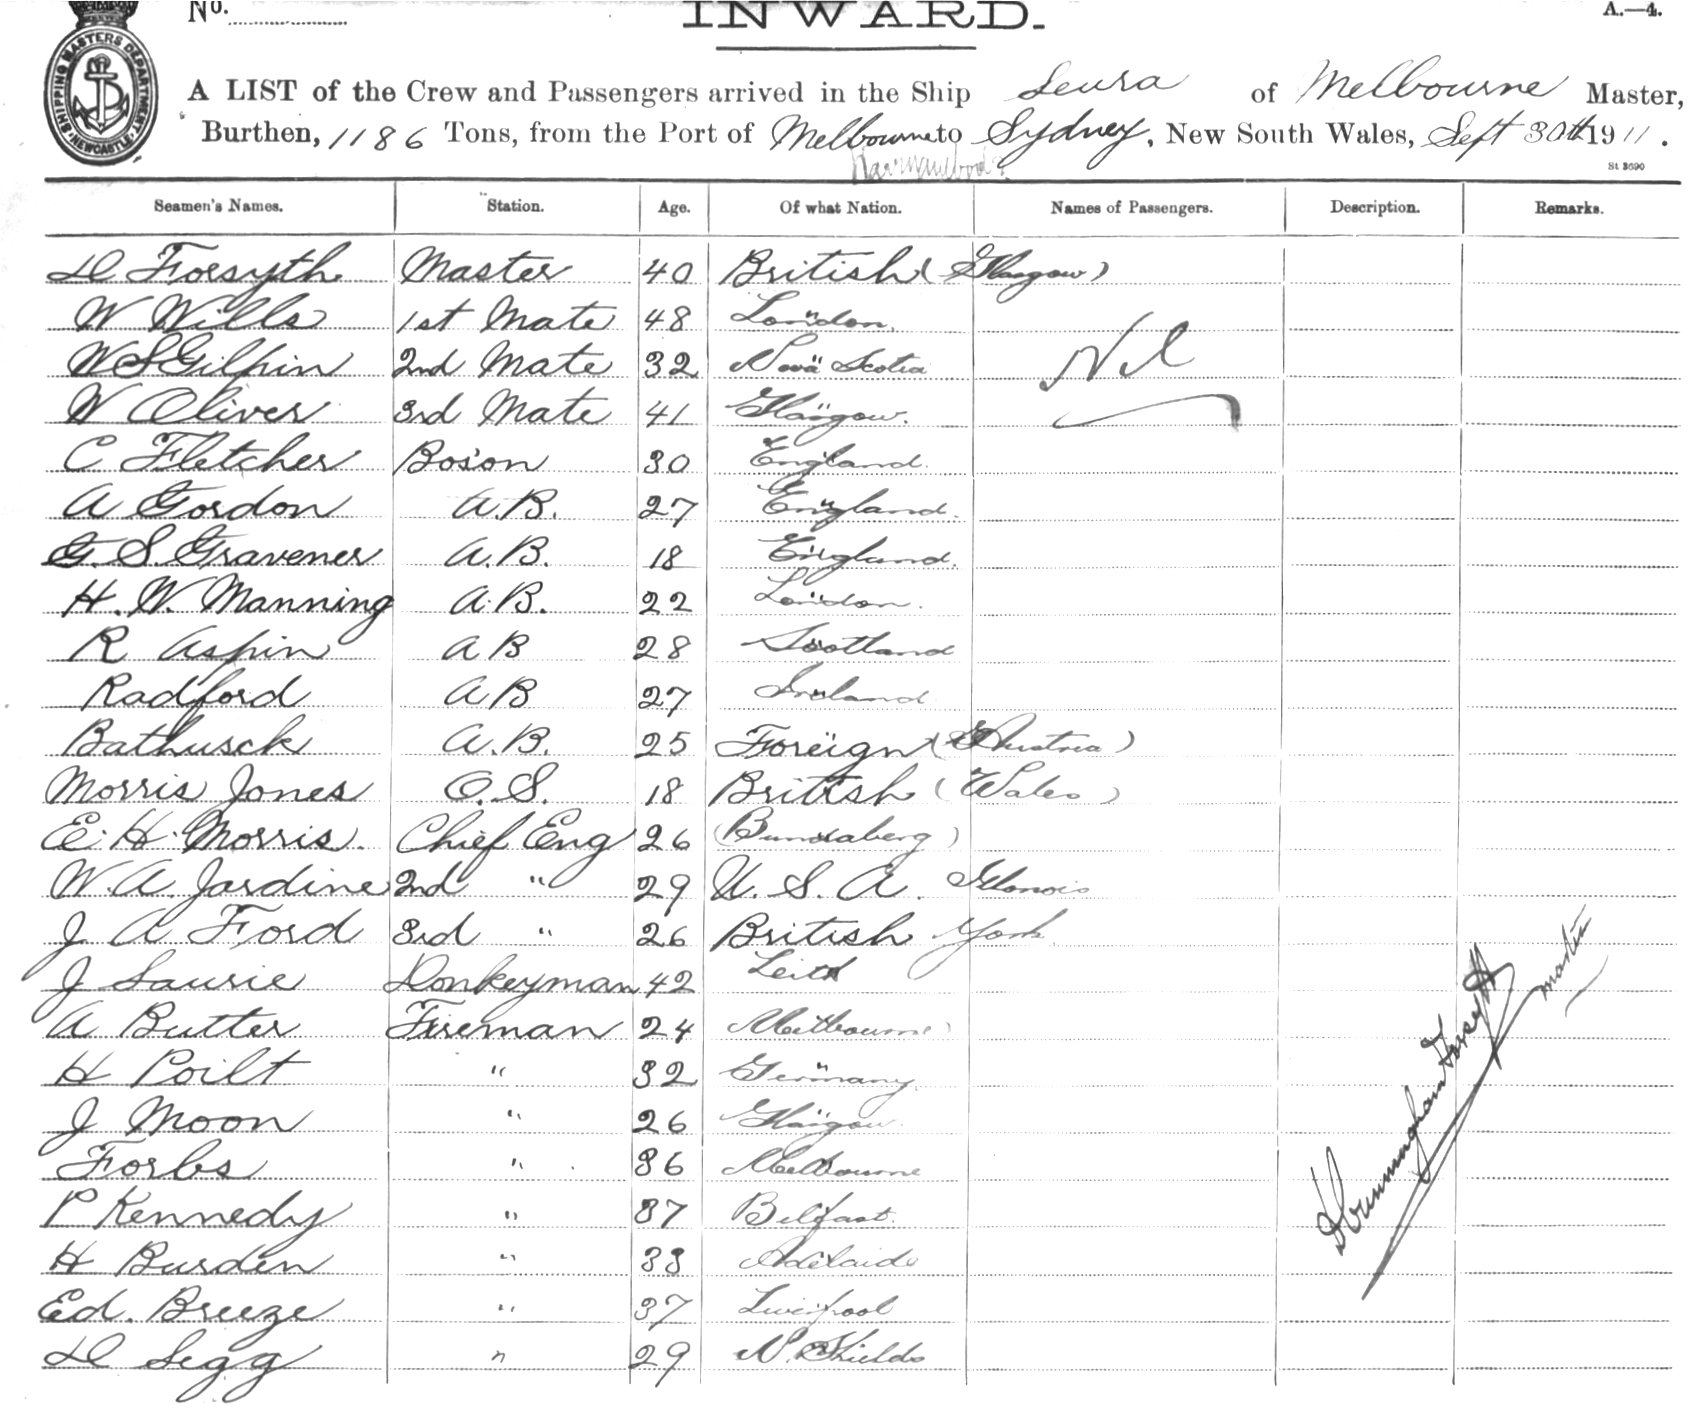 No.
INWARD.
A.—4.
SHIPPING MASTERS DEPARTMENT NEWCASTLE
A LIST of the Crew and Passengers arrived in the Ship Leura of Melbourne Master,
Burthen, 1186 Tons, from the Port of Melbourne to Sydney, New South Wales, Sept 30th 1911.
St 3690
Seamen's Names. Station. Age. Of what Nation. Names of Passengers. Description. Remarks.
D Forsyth Master 40 British (Glasgow)
W Wills 1st Mate 48 London.
W S Gilpin 2nd Mate 32 Nova Scotia Nil
W Oliver 3rd Mate 41 Glasgow.
C Fletcher Bos'on 30 England.
A Gordon A.B. 27 England.
G. S. Gravener A.B. 18 England.
H. W. Manning A.B. 22 London.
R Aspin AB 28 Scotland
Radford AB 27 Ireland
Bathusck A.B. 25 Foreign (Austria)
Morris Jones O.S. 18 British (Wales)
E. H. Morris. Chief Eng 26 (Bundaberg)
W. A. Jardine 2nd " 29 U. S. A. Illonois
J A Ford 3rd " 26 British York.
J Laurie Donkeyman 42 Leith
A Butter Fireman 24 Melbourne
H Poilt " 32 Germany.
J Moon " 26 Glasgow.
Forbs " 36 Melbourne
P Kennedy " 37 Belfast.
H Burden " 33 Adelaide
Ed. Breeze " 37 Liverpool
D Legg " 29 N. Shields
D Cunningham Forsyth
Master